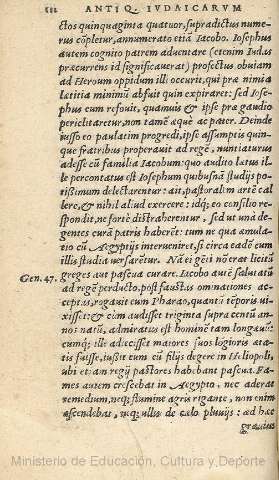 ANTIQ. IVDAICARVM
ctos quinquaginta quatuor, supradictus nume-
rus cōpletur, annumerato etiā Iacobo. Iosephus
autem cognito patrem aduentare (etenim Iudas
præcurrens id significauerat) profectus obuiam
ad Heroum oppidum illi occurit, qui præ nimia
lætitia minimū abfuit quin expiraret: sed Iose-
phus eum refouit, quamuis & ipse præ gaudio
periclitaretur, non tamē æquè ac pater. Deinde
iusso eo paulatim progredi, ipse assumptis quin-
que fratribus properauit ad regē, nuntiaturus
adesse cū familia Iacobum: quo audito lætus il-
le percontatus est Iosephum quibusnā studijs po-
tißimum delectarentur: ait, pastoralem artē cal-
lere, & nihil aliud exercere: idq; eo consilio re-
spondit, ne fortè distraherentur, sed ut una de-
gentes curā patris haberēt: tum ne qua æmula-
tio cū Aegyptijs interueniret, si circa eadē cum
illis studia uersarētur. Nā ei gēti nō erat licitū
Gen. 47. greges aut pascua curare. Iacobo autē salutatū
ad regē perducto, post faustas ominationes ac-
ceptas, rogauit eum Pharao, quantū tēporis ui-
xisset: & cùm audisset triginta supra centū an-
nos natū, admiratus est hominē tam longæuū:
cumq; ille adiecisset maiores suos logioris æta-
tis fuisse, iussit eum cū filijs degere in Heliopoli,
ubi et iam regij pastores habebant pascua. Fa-
mes autem crescebat in Aegypto, nec aderat
remedium, neq; flumine agris rigante, non enim
ascendebat, neq; ullis de cælo pluuijs: ad hæc
grauius
Ministerio de Educación, Cultura y Deporte